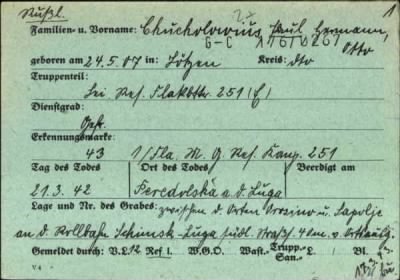 Rußl.
1
Familien- u. Vorname: Chucholowius, Paul Hermann,
G-C Otto
geboren am 24.5.07 in: Lötzen Kreis: dto
Truppenteil:
Lei. Res. Flakbttr. 251 (E)
Dienstgrad:
Gefr.
Erkennungsmarke:
43 1/Fla. M. G. Res. Komp. 251
Tag des Todes Ort des Todes Beerdigt am
21.3.42 Peredolskaja a.d. Luga
Lage und Nr. des Grabes: zwischen d. Orten und Sapolje
an d. Rollbahn Schimsk-Luga südl. Straße
Gemeldet durch: V.L. 12 Ref 1. W.G.O. Wast. Trupp.- San.- L. Bl.
V 4